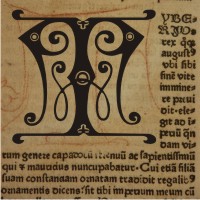 TYBE
RIVS
rex qꝫ
august
vbi sibi
finē vite
immine
re pruí
dit ele
git ad
dam vi
rum genere ac sapientissimū
qui et mauricius nuncupabatur. Cui etiā filiā
suam constantiam ornatam tradidit regalibꝰ
ornamentis dicens sit tibi imperium meum cū